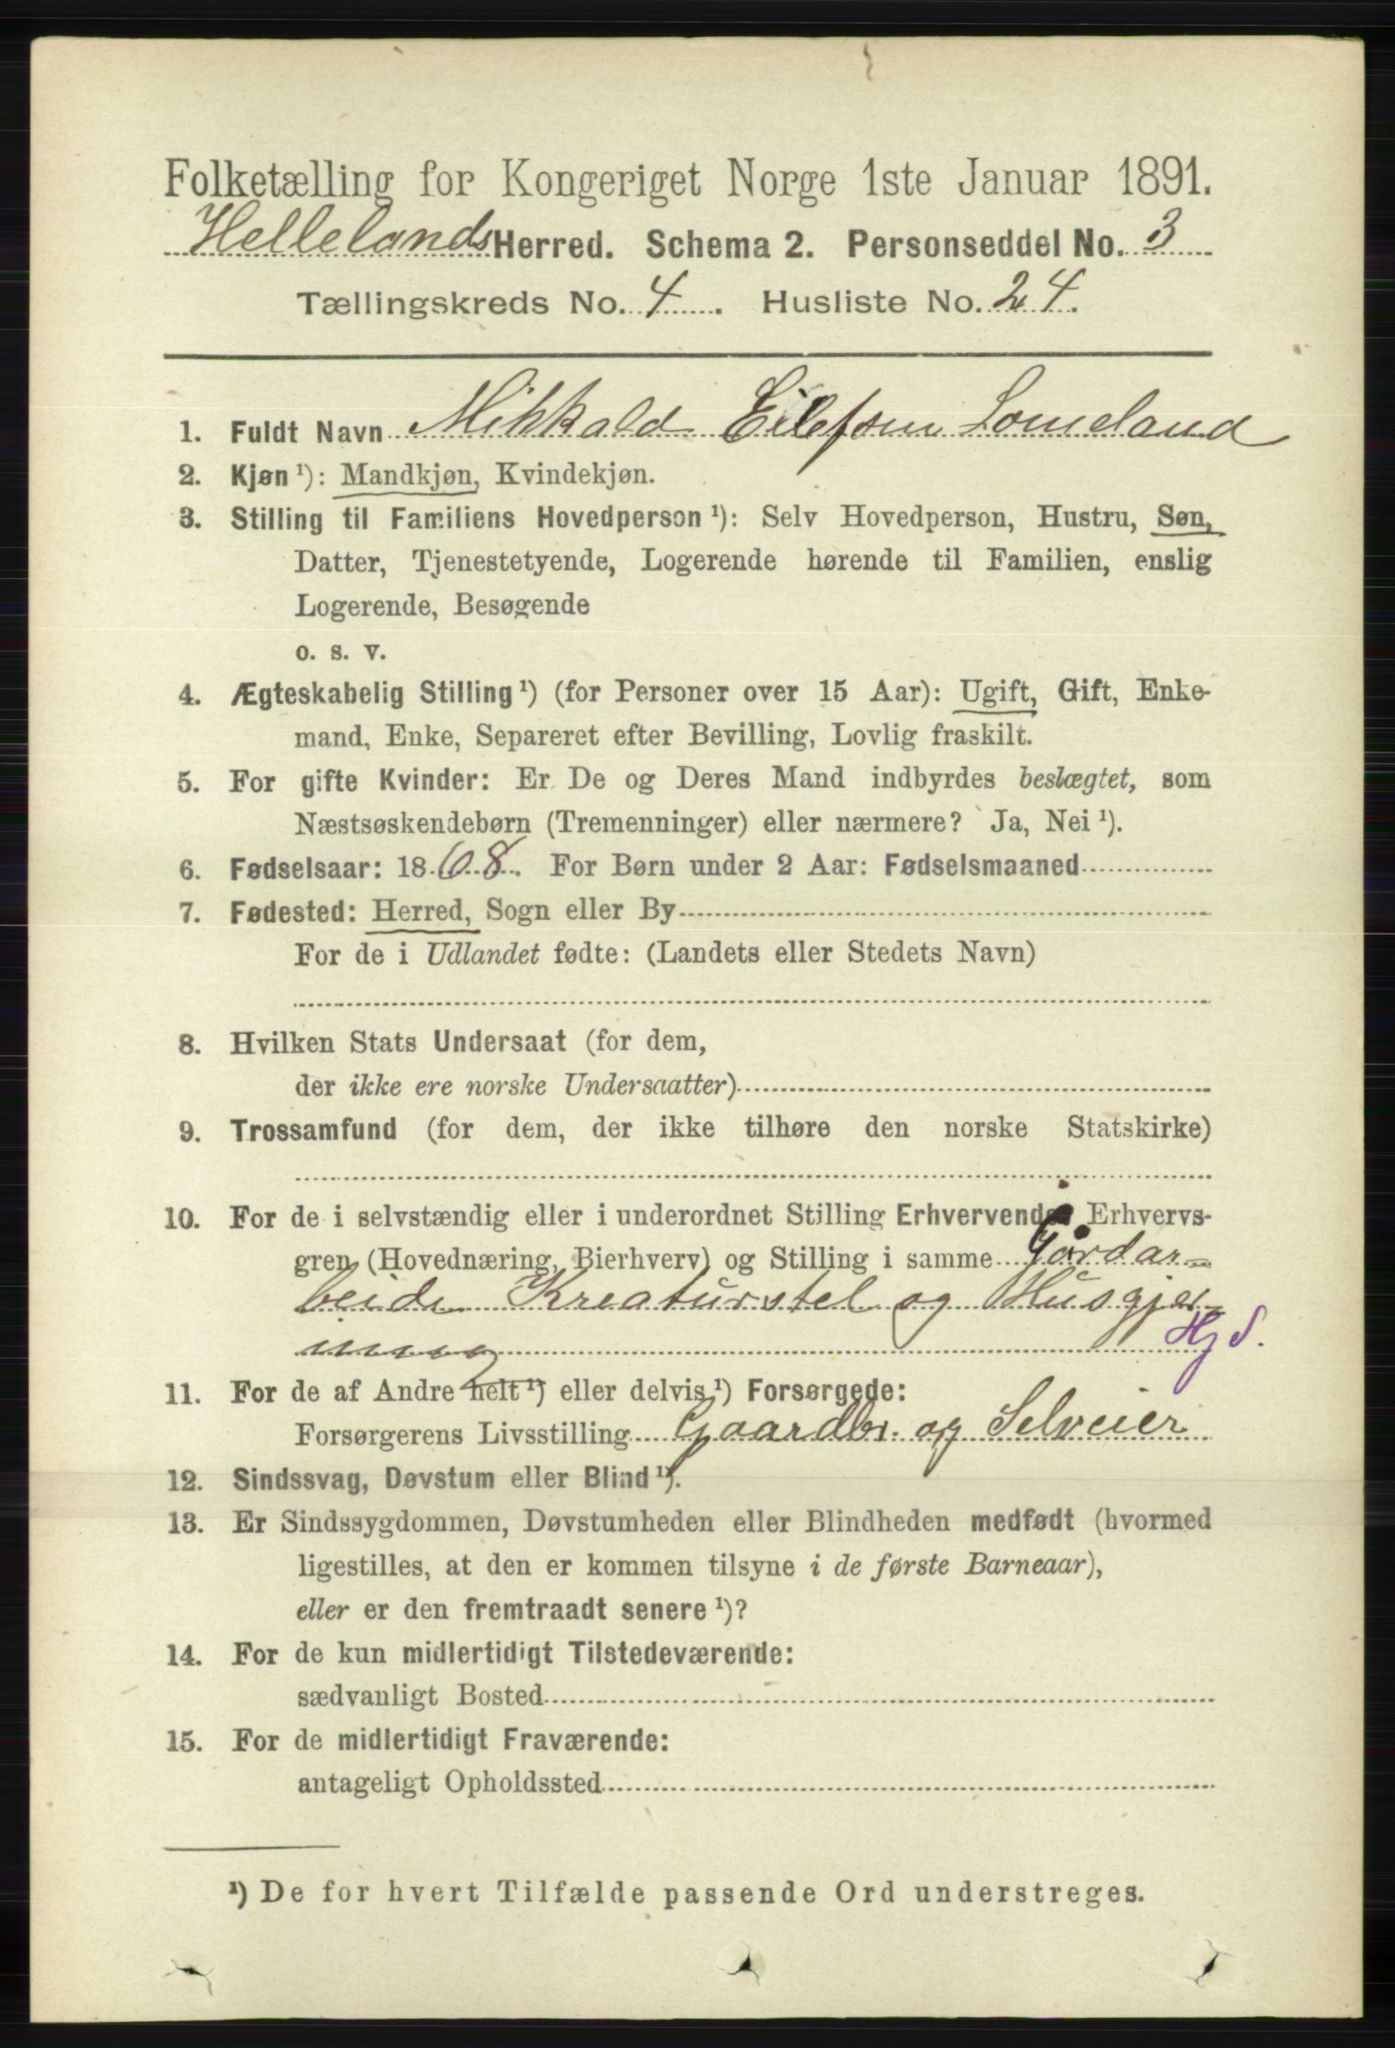 Folketælling for Kongeriget Norge 1ste Januar 1891.
Hellelands Herred. Schema 2. Personseddel No. 3
Tællingskreds No. 4. Husliste No. 24.
1. Fuldt Navn Mikkald Eilefsen Lomeland
2. Kjøn ¹): Mandkjøn, Kvindekjøn.
3. Stilling til Familiens Hovedperson ¹): Selv Hovedperson, Hustru, Søn,
Datter, Tjenestetyende, Logerende hørende til Familien, enslig
Logerende, Besøgende
o. s. v.
4. Ægteskabelig Stilling ¹) (for Personer over 15 Aar): Ugift, Gift, Enke-
mand, Enke, Separeret efter Bevilling, Lovlig fraskilt.
5. For gifte Kvinder: Er De og Deres Mand indbyrdes beslægtet, som
Næstsøskendebørn (Tremenninger) eller nærmere? Ja, Nei ¹).
6. Fødselsaar: 1868. For Børn under 2 Aar: Fødselsmaaned
7. Fødested: Herred, Sogn eller By
For de i Udlandet fødte: (Landets eller Stedets Navn)
8. Hvilken Stats Undersaat (for dem,
der ikke ere norske Undersaatter)
9. Trossamfund (for dem, der ikke tilhøre den norske Statskirke)
10. For de i selvstændig eller i underordnet Stilling Erhvervende: Erhvervs-
gren (Hovednæring, Bierhverv) og Stilling i samme Gårdar-
beide Kreaturstel og Husgjer
ning Hj S.
11. For de af Andre helt ¹) eller delvis ¹) Forsørgede:
Forsørgerens Livsstilling Gaardbr. og Selveier
12. Sindssvag, Døvstum eller Blind ¹).
13. Er Sindssygdommen, Døvstumheden eller Blindheden medfødt (hvormed
ligestilles, at den er kommen tilsyne i de første Barneaar),
eller er den fremtraadt senere ¹)?
14. For de kun midlertidigt Tilstedeværende:
sædvanligt Bosted
15. For de midlertidigt Fraværende:
antageligt Opholdssted
¹) De for hvert Tilfælde passende Ord understreges.